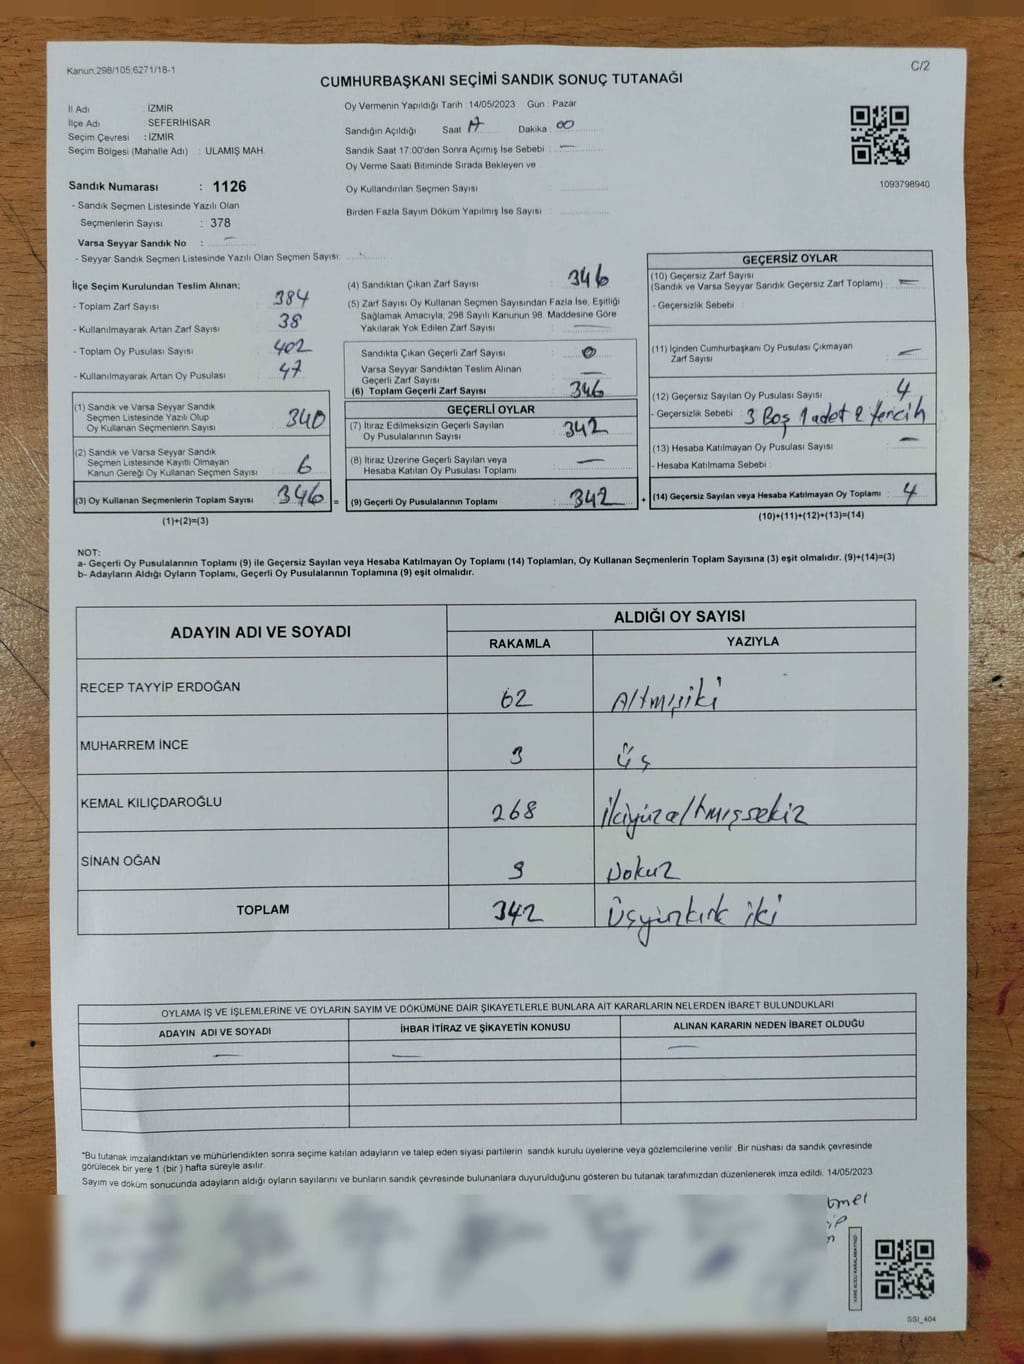 Kanun:298/105;6271/18-1
C/2
CUMHURBAŞKANI SEÇİMİ SANDIK SONUÇ TUTANAĞI
İl Adı : İZMİR
İlçe Adı : SEFERİHİSAR
Seçim Çevresi : İZMİR
Seçim Bölgesi (Mahalle Adı) : ULAMIŞ MAH.
Sandık Numarası : 1126
- Sandık Seçmen Listesinde Yazılı Olan
Seçmenlerin Sayısı : 378
Varsa Seyyar Sandık No : —
- Seyyar Sandık Seçmen Listesinde Yazılı Olan Seçmen Sayısı:
Oy Vermenin Yapıldığı Tarih : 14/05/2023 Gün : Pazar
Sandığın Açıldığı Saat 17 Dakika : 00
Sandık Saat 17:00'den Sonra Açımış İse Sebebi : —
Oy Verme Saati Bitiminde Sırada Bekleyen ve
Oy Kullandırılan Seçmen Sayısı :
Birden Fazla Sayım Döküm Yapılmış İse Sayısı :
1093798940
İlçe Seçim Kurulundan Teslim Alınan;
- Toplam Zarf Sayısı : 384
- Kullanılmayarak Artan Zarf Sayısı : 38
- Toplam Oy Pusulası Sayısı : 402
- Kullanılmayarak Artan Oy Pusulası : 47
(1) Sandık ve Varsa Seyyar Sandık
Seçmen Listesinde Yazılı Olup
Oy Kullanan Seçmenlerin Sayısı : 340
(2) Sandık ve Varsa Seyyar Sandık
Seçmen Listesinde Kayıtlı Olmayan
Kanun Gereği Oy Kullanan Seçmen Sayısı : 6
(3) Oy Kullanan Seçmenlerin Toplam Sayısı : 346 =
(1)+(2)=(3)
(4) Sandıktan Çıkan Zarf Sayısı : 346
(5) Zarf Sayısı Oy Kullanan Seçmen Sayısından Fazla İse, Eşitliği
Sağlamak Amacıyla, 298 Sayılı Kanunun 98. Maddesine Göre
Yakılarak Yok Edilen Zarf Sayısı : —
Sandıkta Çıkan Geçerli Zarf Sayısı : 0
Varsa Seyyar Sandıktan Teslim Alınan
Geçerli Zarf Sayısı : —
(6) Toplam Geçerli Zarf Sayısı : 346
GEÇERLİ OYLAR
(7) İtiraz Edilmeksizin Geçerli Sayılan
Oy Pusulalarının Sayısı : 342
(8) İtiraz Üzerine Geçerli Sayılan veya
Hesaba Katılan Oy Pusulası Toplamı : —
(9) Geçerli Oy Pusulalarının Toplamı : 342 +
GEÇERSİZ OYLAR
(10) Geçersiz Zarf Sayısı
(Sandık ve Varsa Seyyar Sandık Geçersiz Zarf Toplamı) : —
- Geçersizlik Sebebi :
(11) İçinden Cumhurbaşkanı Oy Pusulası Çıkmayan
Zarf Sayısı : —
(12) Geçersiz Sayılan Oy Pusulası Sayısı : 4
- Geçersizlik Sebebi : 3 Boş 1 adet 2 tercih
(13) Hesaba Katılmayan Oy Pusulası Sayısı : —
- Hesaba Katılmama Sebebi :
(14) Geçersiz Sayılan veya Hesaba Katılmayan Oy Toplamı : 4
(10)+(11)+(12)+(13)=(14)
NOT:
a- Geçerli Oy Pusulalarının Toplamı (9) ile Geçersiz Sayılan veya Hesaba Katılmayan Oy Toplamı (14) Toplamları, Oy Kullanan Seçmenlerin Toplam Sayısına (3) eşit olmalıdır. (9)+(14)=(3)
b- Adayların Aldığı Oyların Toplamı, Geçerli Oy Pusulalarının Toplamına (9) eşit olmalıdır.
ADAYIN ADI VE SOYADI
ALDIĞI OY SAYISI
RAKAMLA YAZIYLA
RECEP TAYYİP ERDOĞAN 62 Altmışiki
MUHARREM İNCE 3 Üç
KEMAL KILIÇDAROĞLU 268 İkiyüzaltmışsekiz
SİNAN OĞAN 9 Dokuz
TOPLAM 342 Üçyüzkırk iki
OYLAMA İŞ VE İŞLEMLERİNE VE OYLARIN SAYIM VE DÖKÜMÜNE DAİR ŞİKAYETLERLE BUNLARA AİT KARARLARIN NELERDEN İBARET BULUNDUKLARI
ADAYIN ADI VE SOYADI İHBAR İTİRAZ VE ŞİKAYETİN KONUSU ALINAN KARARIN NEDEN İBARET OLDUĞU
— — —
*Bu tutanak imzalandıktan ve mühürlendikten sonra seçime katılan adayların ve talep eden siyasi partilerin sandık kurulu üyelerine veya gözlemcilerine verilir. Bir nüshası da sandık çevresinde
görülecek bir yere 1 (bir ) hafta süreyle asılır.
Sayım ve döküm sonucunda adayların aldığı oyların sayılarını ve bunların sandık çevresinde bulunanlara duyurulduğunu gösteren bu tutanak tarafımızdan düzenlenerek imza edildi. 14/05/2023
SSI_404